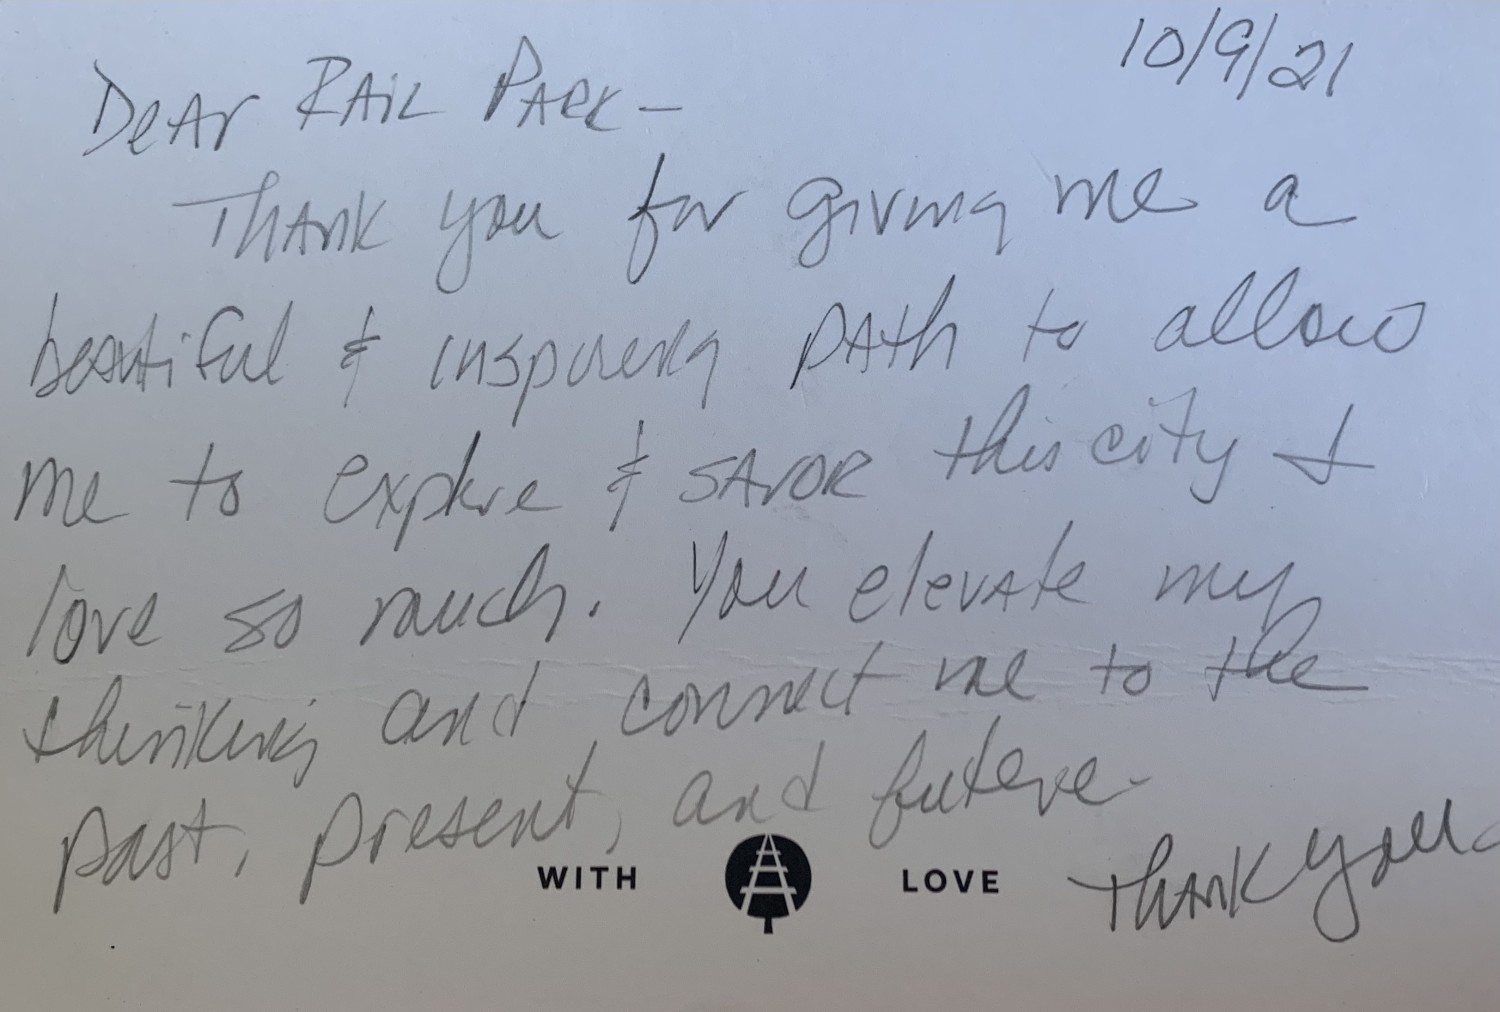 10/9/21
Dear Rail Park -
Thank you for giving me a
beautiful & inspiring path to allow
me to explore & savor this city I
love so much. You elevate my
thinking and connect me to the
past, present, and future.
Thank you
WITH LOVE